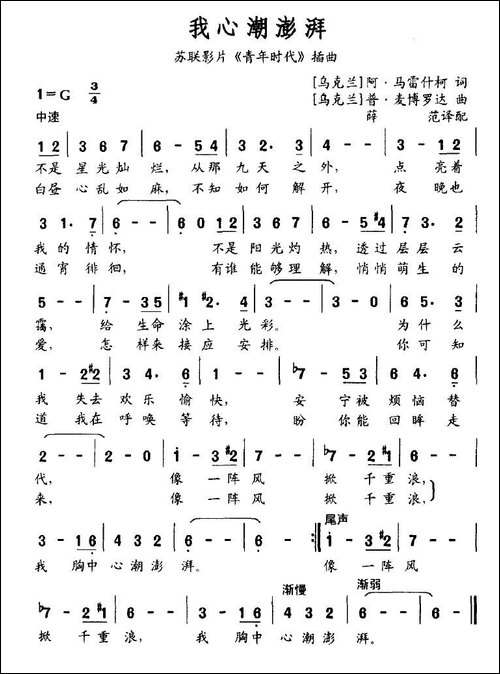 我心潮澎湃
苏联影片《青年时代》插曲
1=G 3/4
[乌克兰]阿·马雷什柯 词
[乌克兰]普·麦博罗达 曲
中速
薛 范译配
12 | 3 6 7 | 6 - 54 | 3 4. 3 | 3 - - | 3 - 12 |
不是星光灿烂，从那九天之外，点亮着
白昼心乱如麻，不知如何解开，夜晚也
3 1. 7 | 6 - - | 6 0 12 | 3 6 7 | 6 - 5#4 | 7 3. 2 |
我的情怀，不是阳光灼热，透过层层云
通宵徘徊，有谁能够理解，悄悄萌生的
5 - - | 7 - 35 | #1 #2. 4 | 3 - - | 3 - 0 | 6 5. 3 |
霭，给生命涂上光彩。为什么
爱，怎样来接应安排。你可知
1 - 2#2 | 3 4. 6 | 1 - - | b7 - 53 | 6 4. 6 |
我失去欢乐愉快，安宁被烦恼替
道我在呼唤等待，盼你能回眸走
2 - - | 2 - 0 | 1 - 3#2 | b7 - - | b7 - 2#1 | 6 - - |
代，像一阵风掀千重浪，
来，像一阵风掀千重浪，
尾声
3 - 16 | 4 3 2 | 6 - - | 6 - - :| 1 - 3#2 | 7 - - |
我胸中心潮澎湃。像一阵风
渐慢 渐弱
b7 - 2#1 | 6 - - | 3 - 16 | 4 3 2 | 6 - - | 6 - - |
掀千重浪，我胸中心潮澎湃。